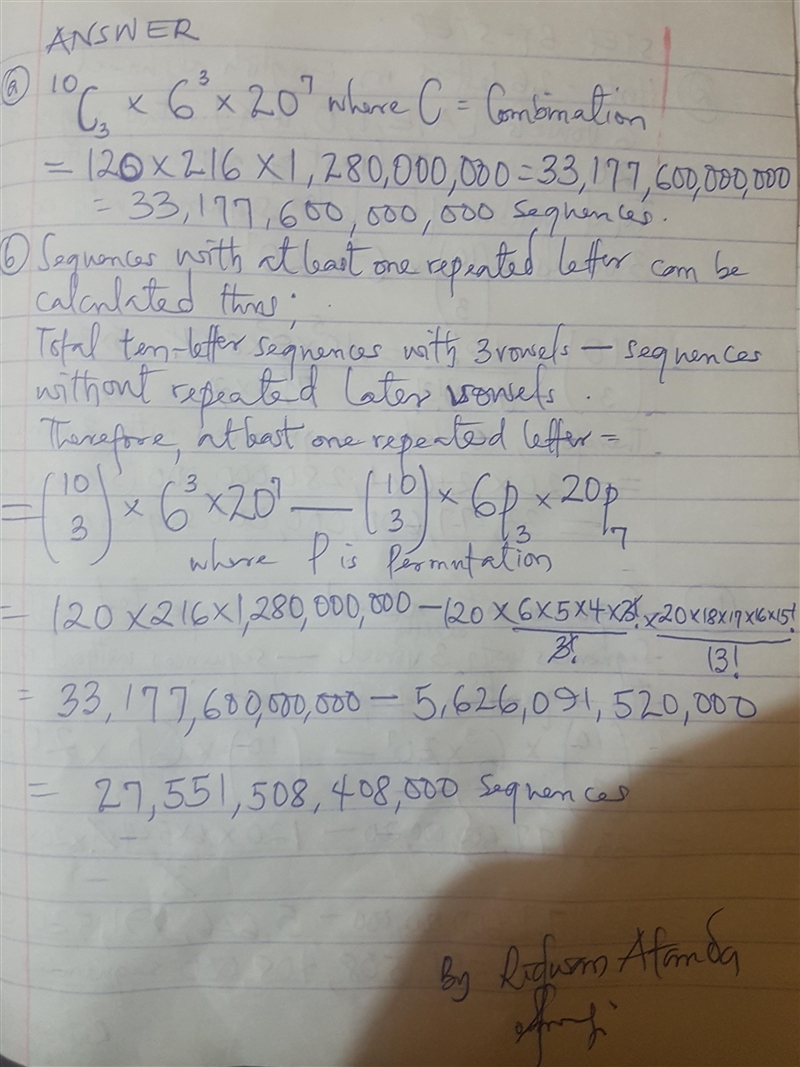 ANSWER
(a) ¹⁰C₃ × 6³ × 20⁷ where C = Combination
= 120 × 216 × 1,280,000,000 = 33,177,600,000,000
= 33,177,600,000,000 Sequences.
(b) Sequences with at least one repeated letter can be
calculated thus;
Total ten-letter sequences with 3 vowels — sequences
without repeated later vowels.
Therefore, at least one repeated letter =
= (10 3) × 6³ × 20⁷ — (10 3) × 6P₃ × 20P₇
where P is Permutation
= 120 × 216 × 1,280,000,000 — 120 × 6×5×4×3!/3! × 20×18×17×16×15!/13!
= 33,177,600,000,000 — 5,626,091,520,000
= 27,551,508,408,000 Sequences
By Ridwan Atanda